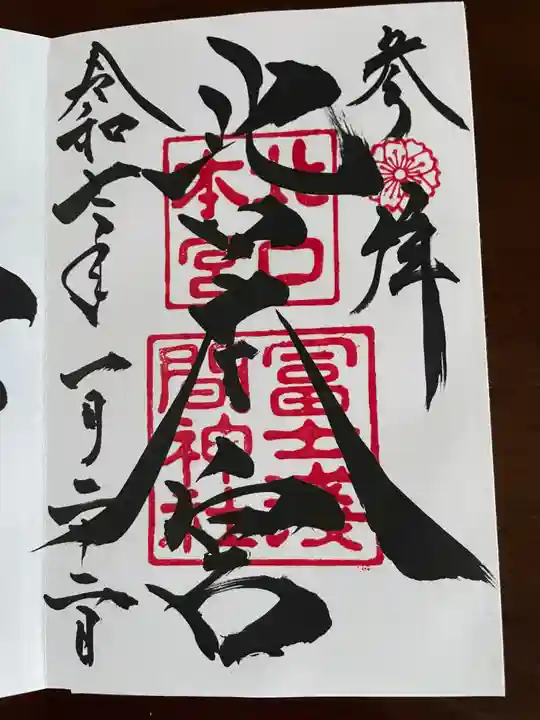 参拝
北口本宮
北口本宮
冨士浅間神社
令和七年一月二十二日